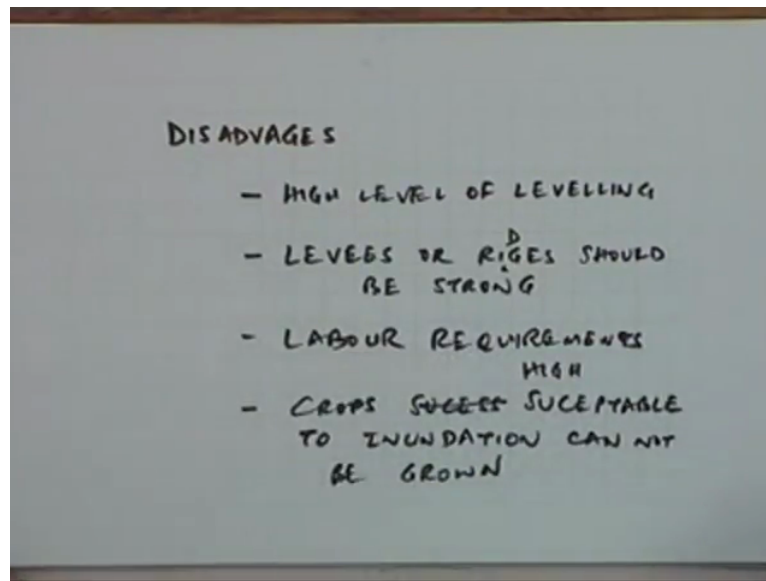 DISADVAGES
- HIGH LEVEL OF LEVELLING
- LEVEES OR RIDGES SHOULD
BE STRONG
- LABOUR REQUIREMENTS
HIGH
- CROPS SUCESS SUCEPTABLE
TO INUNDATION CAN NOT
BE GROWN